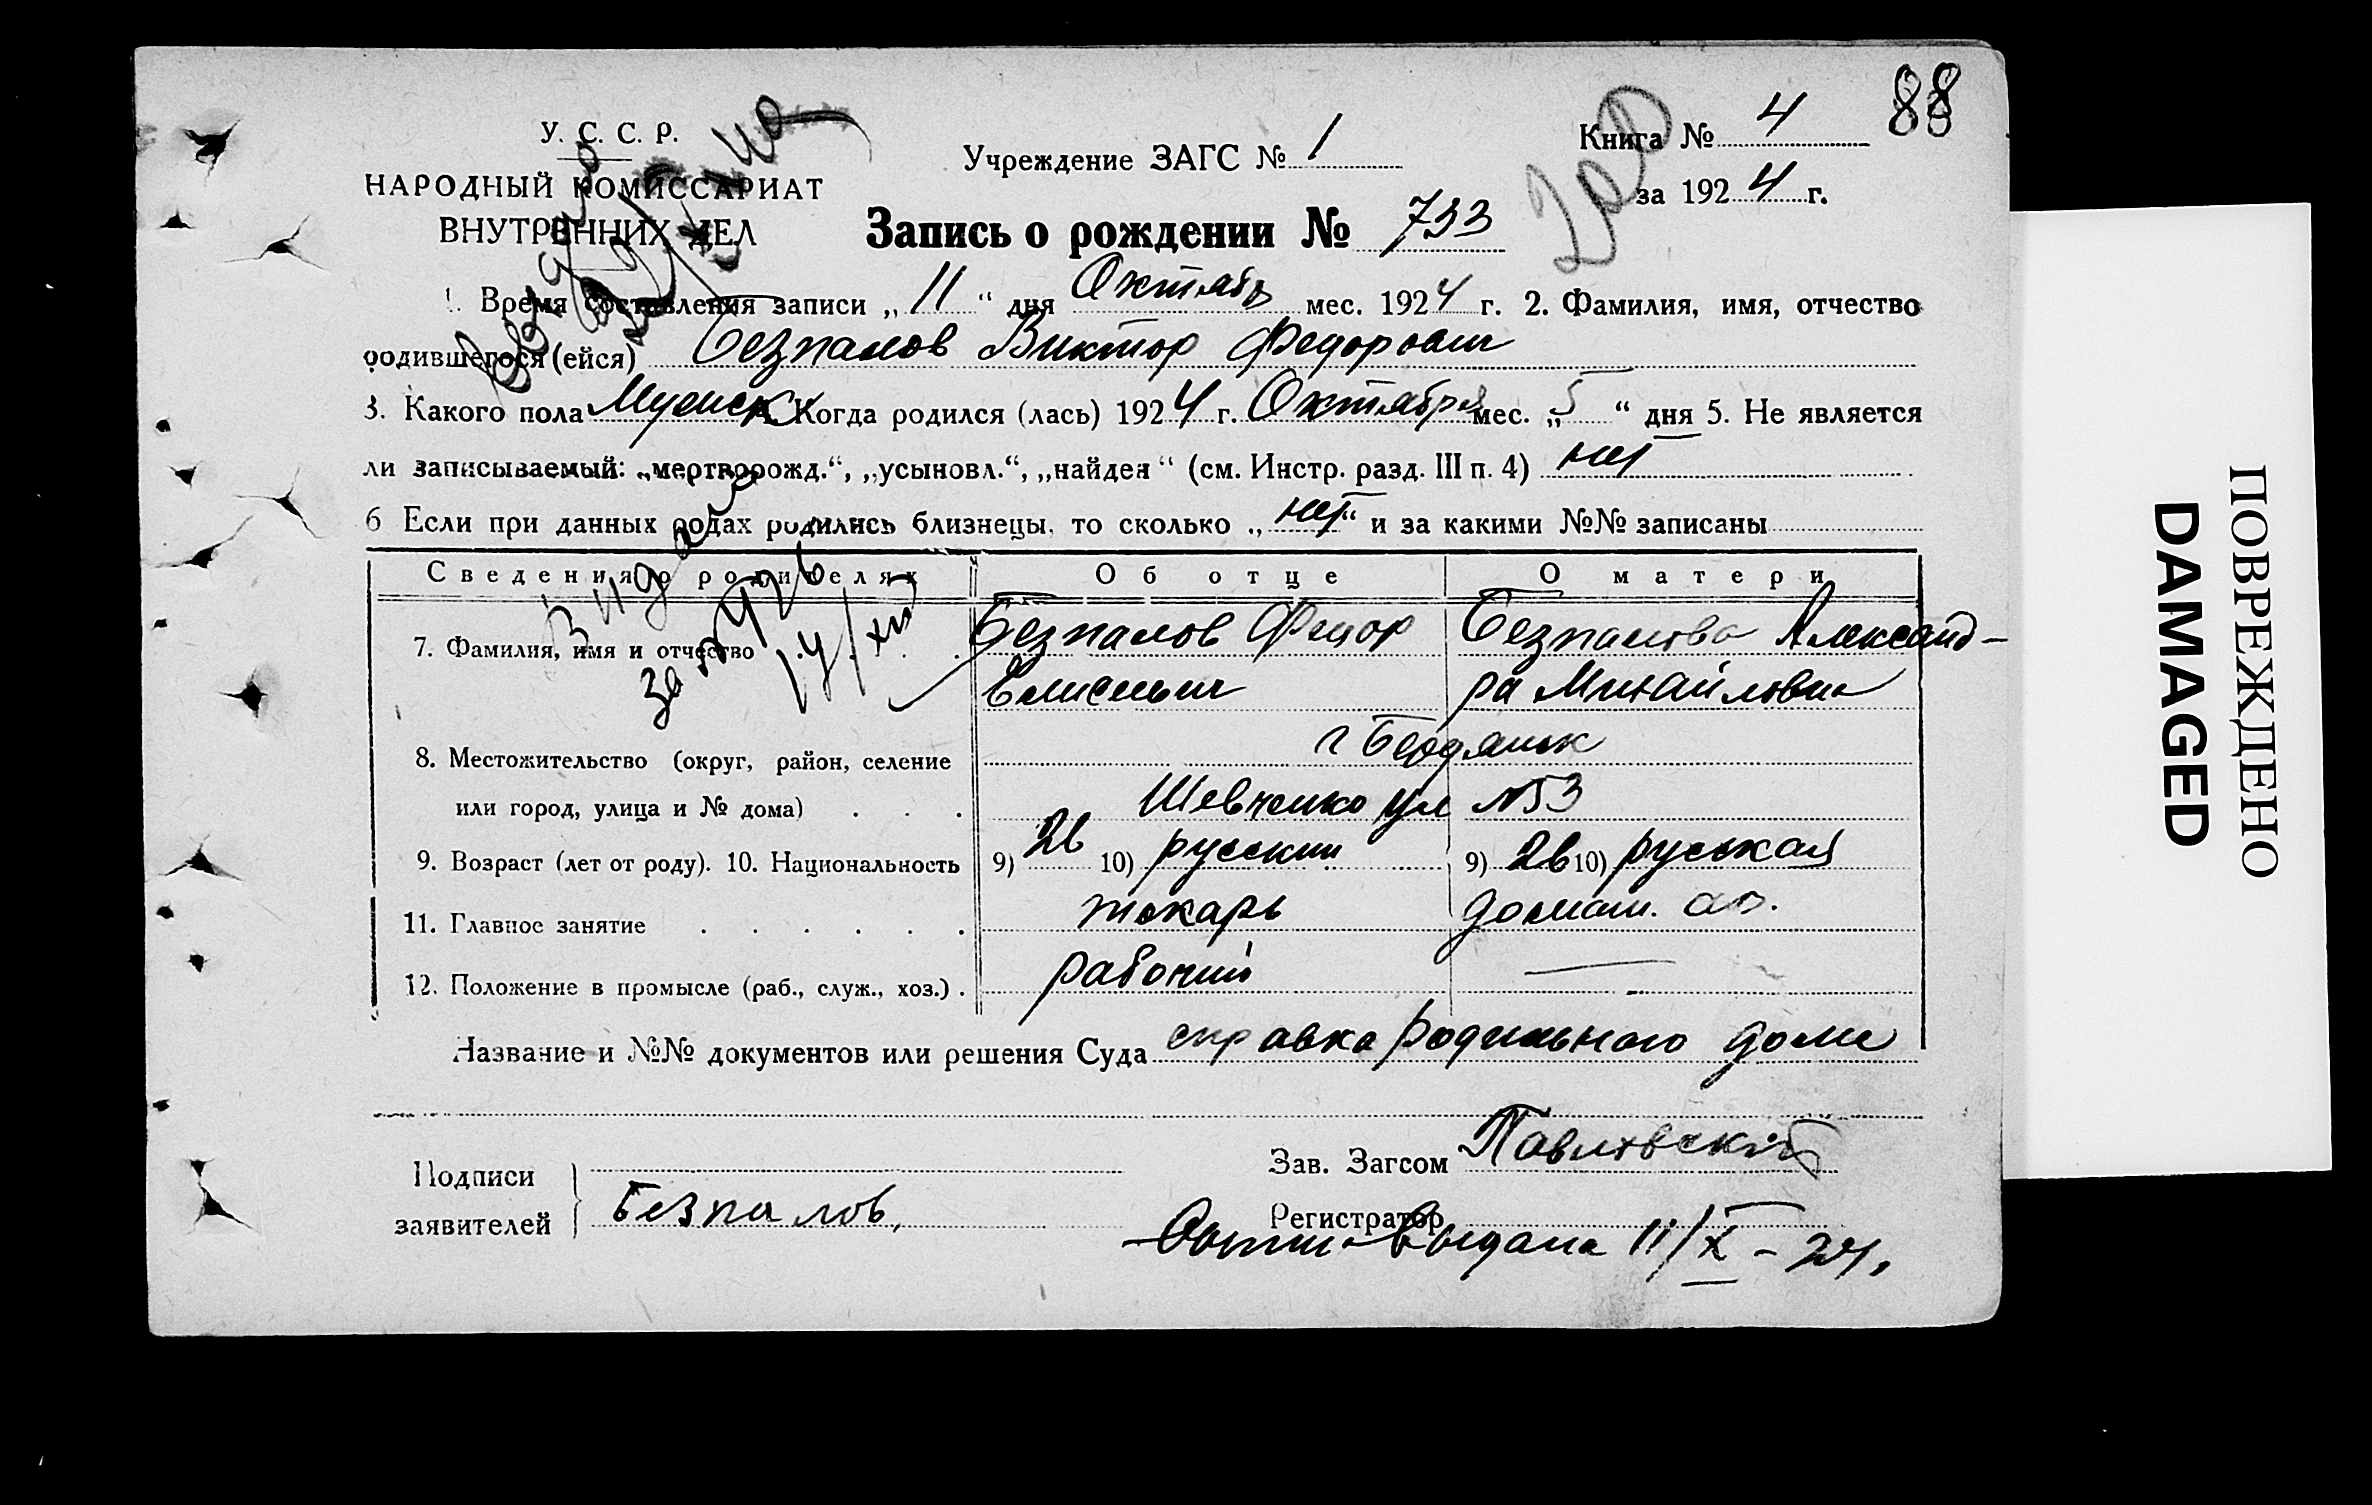 88
У. С. С. Р.
НАРОДНЫЙ КОМИССАРИАТ
ВНУТРЕННИХ ДЕЛ
Учреждение ЗАГС № 1
Книга № 4
за 1924 г.
Запись о рождении № 733
1. Время составления записи „11“ дня Октябр мес. 1924 г. 2. Фамилия, имя, отчество
родившегося (ейся) Безпалов Виктор Федорович
3. Какого пола Мужск 4. Когда родился (лась) 1924 г. Октября мес. „5“ дня 5. Не является
ли записываемый: „мертворожд.“, „усыновл.“, „найден“ (см. Инстр. разд. III п. 4) нет
6 Если при данных родах родились близнецы, то сколько „нет“ и за какими №№ записаны
Сведения о родителях Об отце О матери
7. Фамилия, имя и отчество Безпалов Федор Безпалова Александ-
Елисеевич ра Михайловна
8. Местожительство (округ, район, селение г Бердянск
или город, улица и № дома) Шевченко ул №53
9. Возраст (лет от роду). 10. Национальность 9) 26 10) русский 9) 26 10) русская
11. Главное занятие токарь домаш.
12. Положение в промысле (раб., служ., хоз.) рабочий —
Название и №№ документов или решения Суда справка родильного дома
Подписи
заявителей Безпалов,
Зав. Загсом Павловский
Регистратор
выдана 11/X – 24,
Видано
за №
ПОВРЕЖДЕНО
DAMAGED